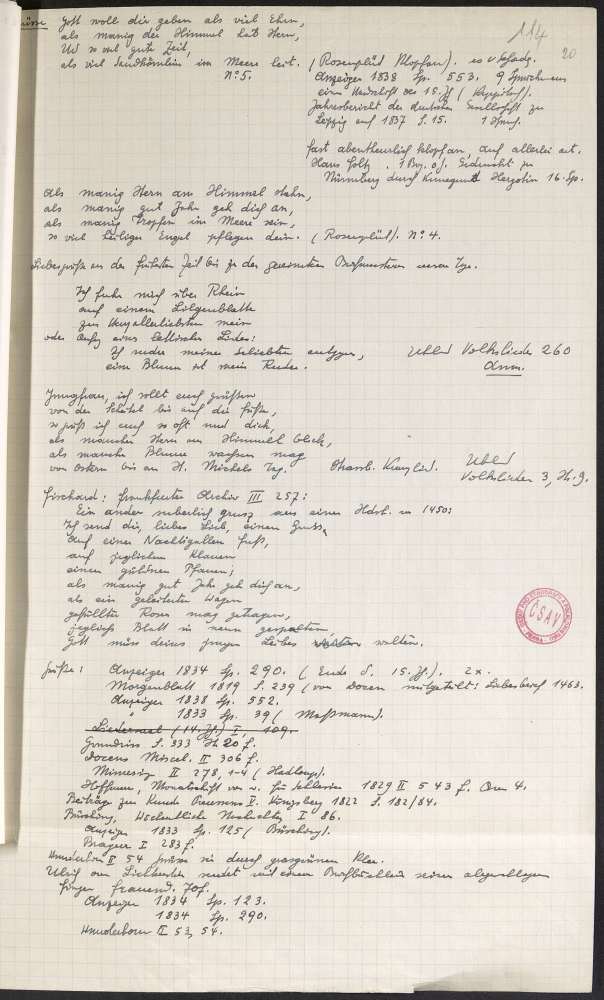 114
20
Gott woll dir geben als viel Ehrn,
als manig der Himmel hat Stern,
Und so viel gute Zeit,
als viel Sandkörnlin im Meere leit. (Rosenplüt Klopfan).
No 5.
Anzeiger 1838 Sp. 553. 9
eine Handschrift des 15. Jh
Jahresbericht der deutschen Gesellschaft zu
Leipzig auf 1837 S. 15.
fast abentheurlich klopf an, auf allerlei art.
Hans Foltz. 1 Bog. o. J. Gedruckt zu
Nürnberg durch Kunegund Hergotin 16. Sp.
als manig Stern am Himmel stahn,
als manig gut Jahr geh dich an,
als manig Tropfen im Meere sein,
so viel heiliger Engel pflegen dein. (Rosenplüt). No 4.
Liebesgrüße aus der frühsten Zeit bis zu den gereimten
Ich fuhr mich über Rhein
auf einem Lilgenblatte
zur Herzallerliebsten mein
oder Anfang eines lettischen Liedes:
Ich rudre meiner Geliebten entgegen,
eine Blume ist mein Ruder.
Uhland Volkslieder 260
Anm.
Jungfrau, ich sollt euch grüßen
von der Scheitel bis auf die Füße,
so grüß ich euch so oft und dick,
als mancher Stern am Himmel blick,
als manche Blume wachsen mag
von Ostern bis an St. Michels Tag.
Uhland
Volkslieder 3, St. 9.
Fischard: Frankfurter Archiv III 257:
Ein ander suberlich grusz aus einer Hdsch. v. 1450:
Ich send dir, liebes Lieb, einen Gruss,
auf einer Nachtigallen Fuß,
auf jeglichem Klauen
einen güldnen Pfauen;
als manig gut Jahr geh dich an,
als ein geleiterter Wagen
gefüllter Rosen mag getragen,
jeglich Blatt in neun gespalten
Gott müss deines jungen Leibes walten.
ČSAV
Grüße: Anzeiger 1834 Sp. 290. (Ende d. 15. Jh.). 2 x.
Morgenblatt 1819 S. 239 (von Docen mitgeteilt: Liebesbrief 1463.
Anzeiger 1838 Sp. 552.
" 1833 Sp. 39 (Maßmann).
Liedersaal (14. Jh.) I, 109.
Grundriss S. 333 St. 20 f.
Docens Miscel. II 306 f.
Minnesing II 278, 1-4 (Hadloup).
Hoffmann, Monatschrift von u. für Schlesien 1829 II 543 f. Anm 4.
Beiträge zur Kunde Preussens V. Königsberg 1822 S. 182/84.
Büsching, Wöchentliche Nachrichten I 86.
Anzeiger 1833 Sp. 125 (Büsching).
Bragur I 283 f.
Wunderhorn II 54 grüsse sie durch grasgrünen Klee.
Ulrich von Lichtenstein sendet mit einem Buchbüchlein seinen abgeschlagenen
Finger Frauend.
Anzeiger 1834 Sp. 123.
1834 Sp. 290.
Wunderhorn II 53, 54.